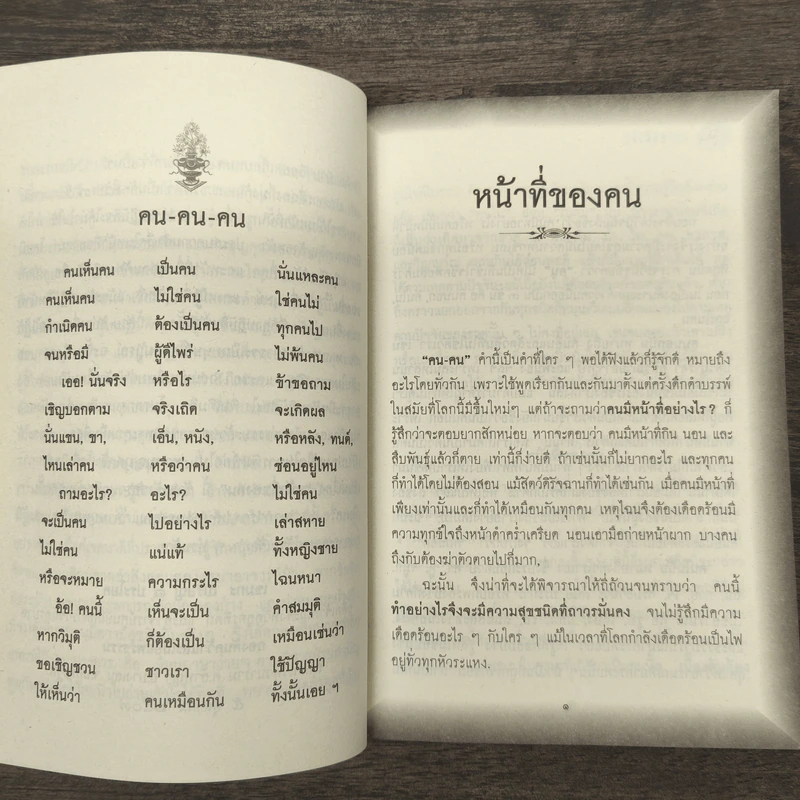 คน-คน-คน
คนเห็นคน เป็นคน นั่นแหละคน
คนเห็นคน ไม่ใช่คน ใช่คนไม่
กำเนิดคน ต้องเป็นคน ทุกคนไป
จนหรือมี ผู้ดีไพร่ ไม่พ้นคน
เออ! นั่นจริง หรือไร ข้าขอถาม
เชิญบอกตาม จริงเถิด จะเกิดผล
นั่นแขน, ขา, เอ็น, หนัง, หรือหลัง, ทนต์,
ไหนเล่าคน หรือว่าคน ซ่อนอยู่ไหน
ถามอะไร? อะไร? ไม่ใช่คน
จะเป็นคน ไปอย่างไร เล่าสหาย
ไม่ใช่คน แน่แท้ ทั้งหญิงชาย
หรือจะหมาย ความกระไร ไฉนหนา
อ้อ! คนนี้ เห็นจะเป็น คำสมมุติ
หากวิมุติ ก็ต้องเป็น เหมือนเช่นว่า
ขอเชิญชวน ชาวเรา ใช้ปัญญา
ให้เห็นว่า คนเหมือนกัน ทั้งนั้นเอย ฯ
หน้าที่ของคน
“คน-คน” คำนี้เป็นคำที่ใคร ๆ พอได้ฟังแล้วก็รู้จักดี หมายถึง
อะไรโดยทั่วกัน เพราะใช้พูดเรียกกันและกันมาตั้งแต่ครั้งดึกดำบรรพ์
ในสมัยที่โลกนี้มีขึ้นใหม่ๆ แต่ถ้าจะถามว่าคนมีหน้าที่อย่างไร? ก็
รู้สึกว่าจะตอบยากสักหน่อย หากจะตอบว่า คนมีหน้าที่กิน นอน และ
สืบพันธุ์แล้วก็ตาย เท่านี้ก็ง่ายดี ถ้าเช่นนั้นก็ไม่ยากอะไร และทุกคน
ก็ทำได้โดยไม่ต้องสอน แม้สัตว์ดิรัจฉานก็ทำได้เช่นกัน เมื่อคนมีหน้าที่
เพียงเท่านั้นและก็ทำได้เหมือนกันทุกคน เหตุไฉนจึงต้องเดือดร้อนมี
ความทุกข์ใจถึงหน้าดำคร่ำเครียด นอนเอามือก่ายหน้าผาก บางคน
ถึงกับต้องฆ่าตัวตายไปก็มาก,
ฉะนั้น จึงน่าที่จะได้พิจารณาให้ถี่ถ้วนจนทราบว่า คนนี้
ทำอย่างไรจึงจะมีความสุขชนิดที่ถาวรมั่นคง จนไม่รู้สึกมีความ
เดือดร้อนอะไร ๆ กับใคร ๆ แม้ในเวลาที่โลกกำลังเดือดร้อนเป็นไฟ
อยู่ทั่วทุกหัวระแหง.
๑